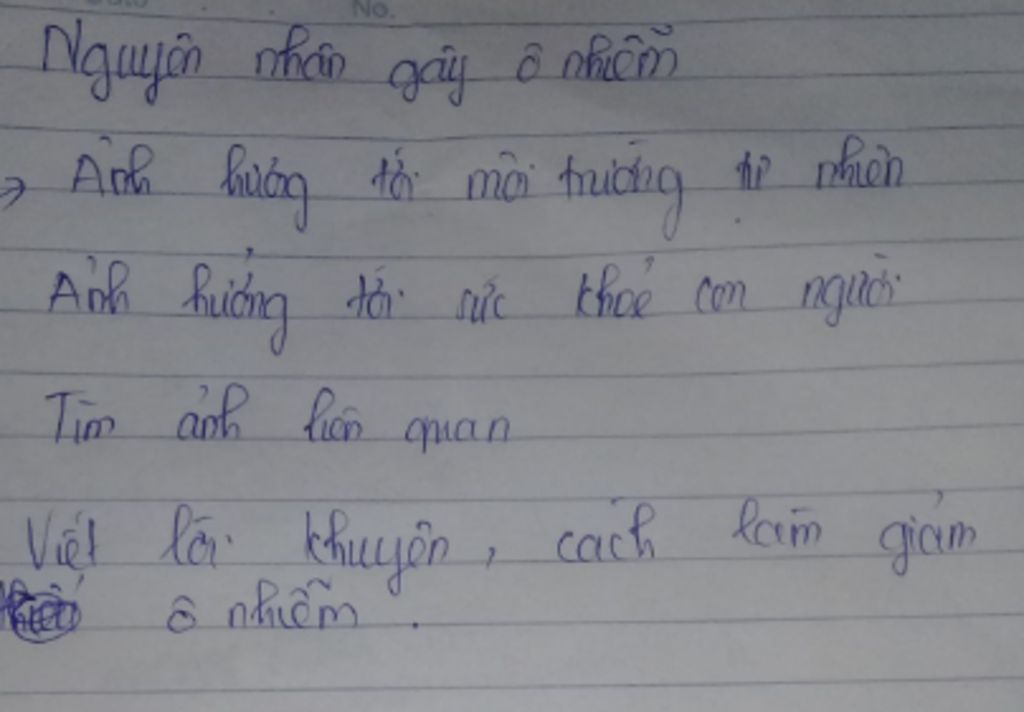 No.
Nguyên nhân gây ô nhiễm
→ Ảnh hưởng tới môi trường tự nhiên
Ảnh hưởng tới sức khoẻ con người
Tìm ảnh liên quan
Viết lời khuyên, cách làm giảm
ô nhiễm.